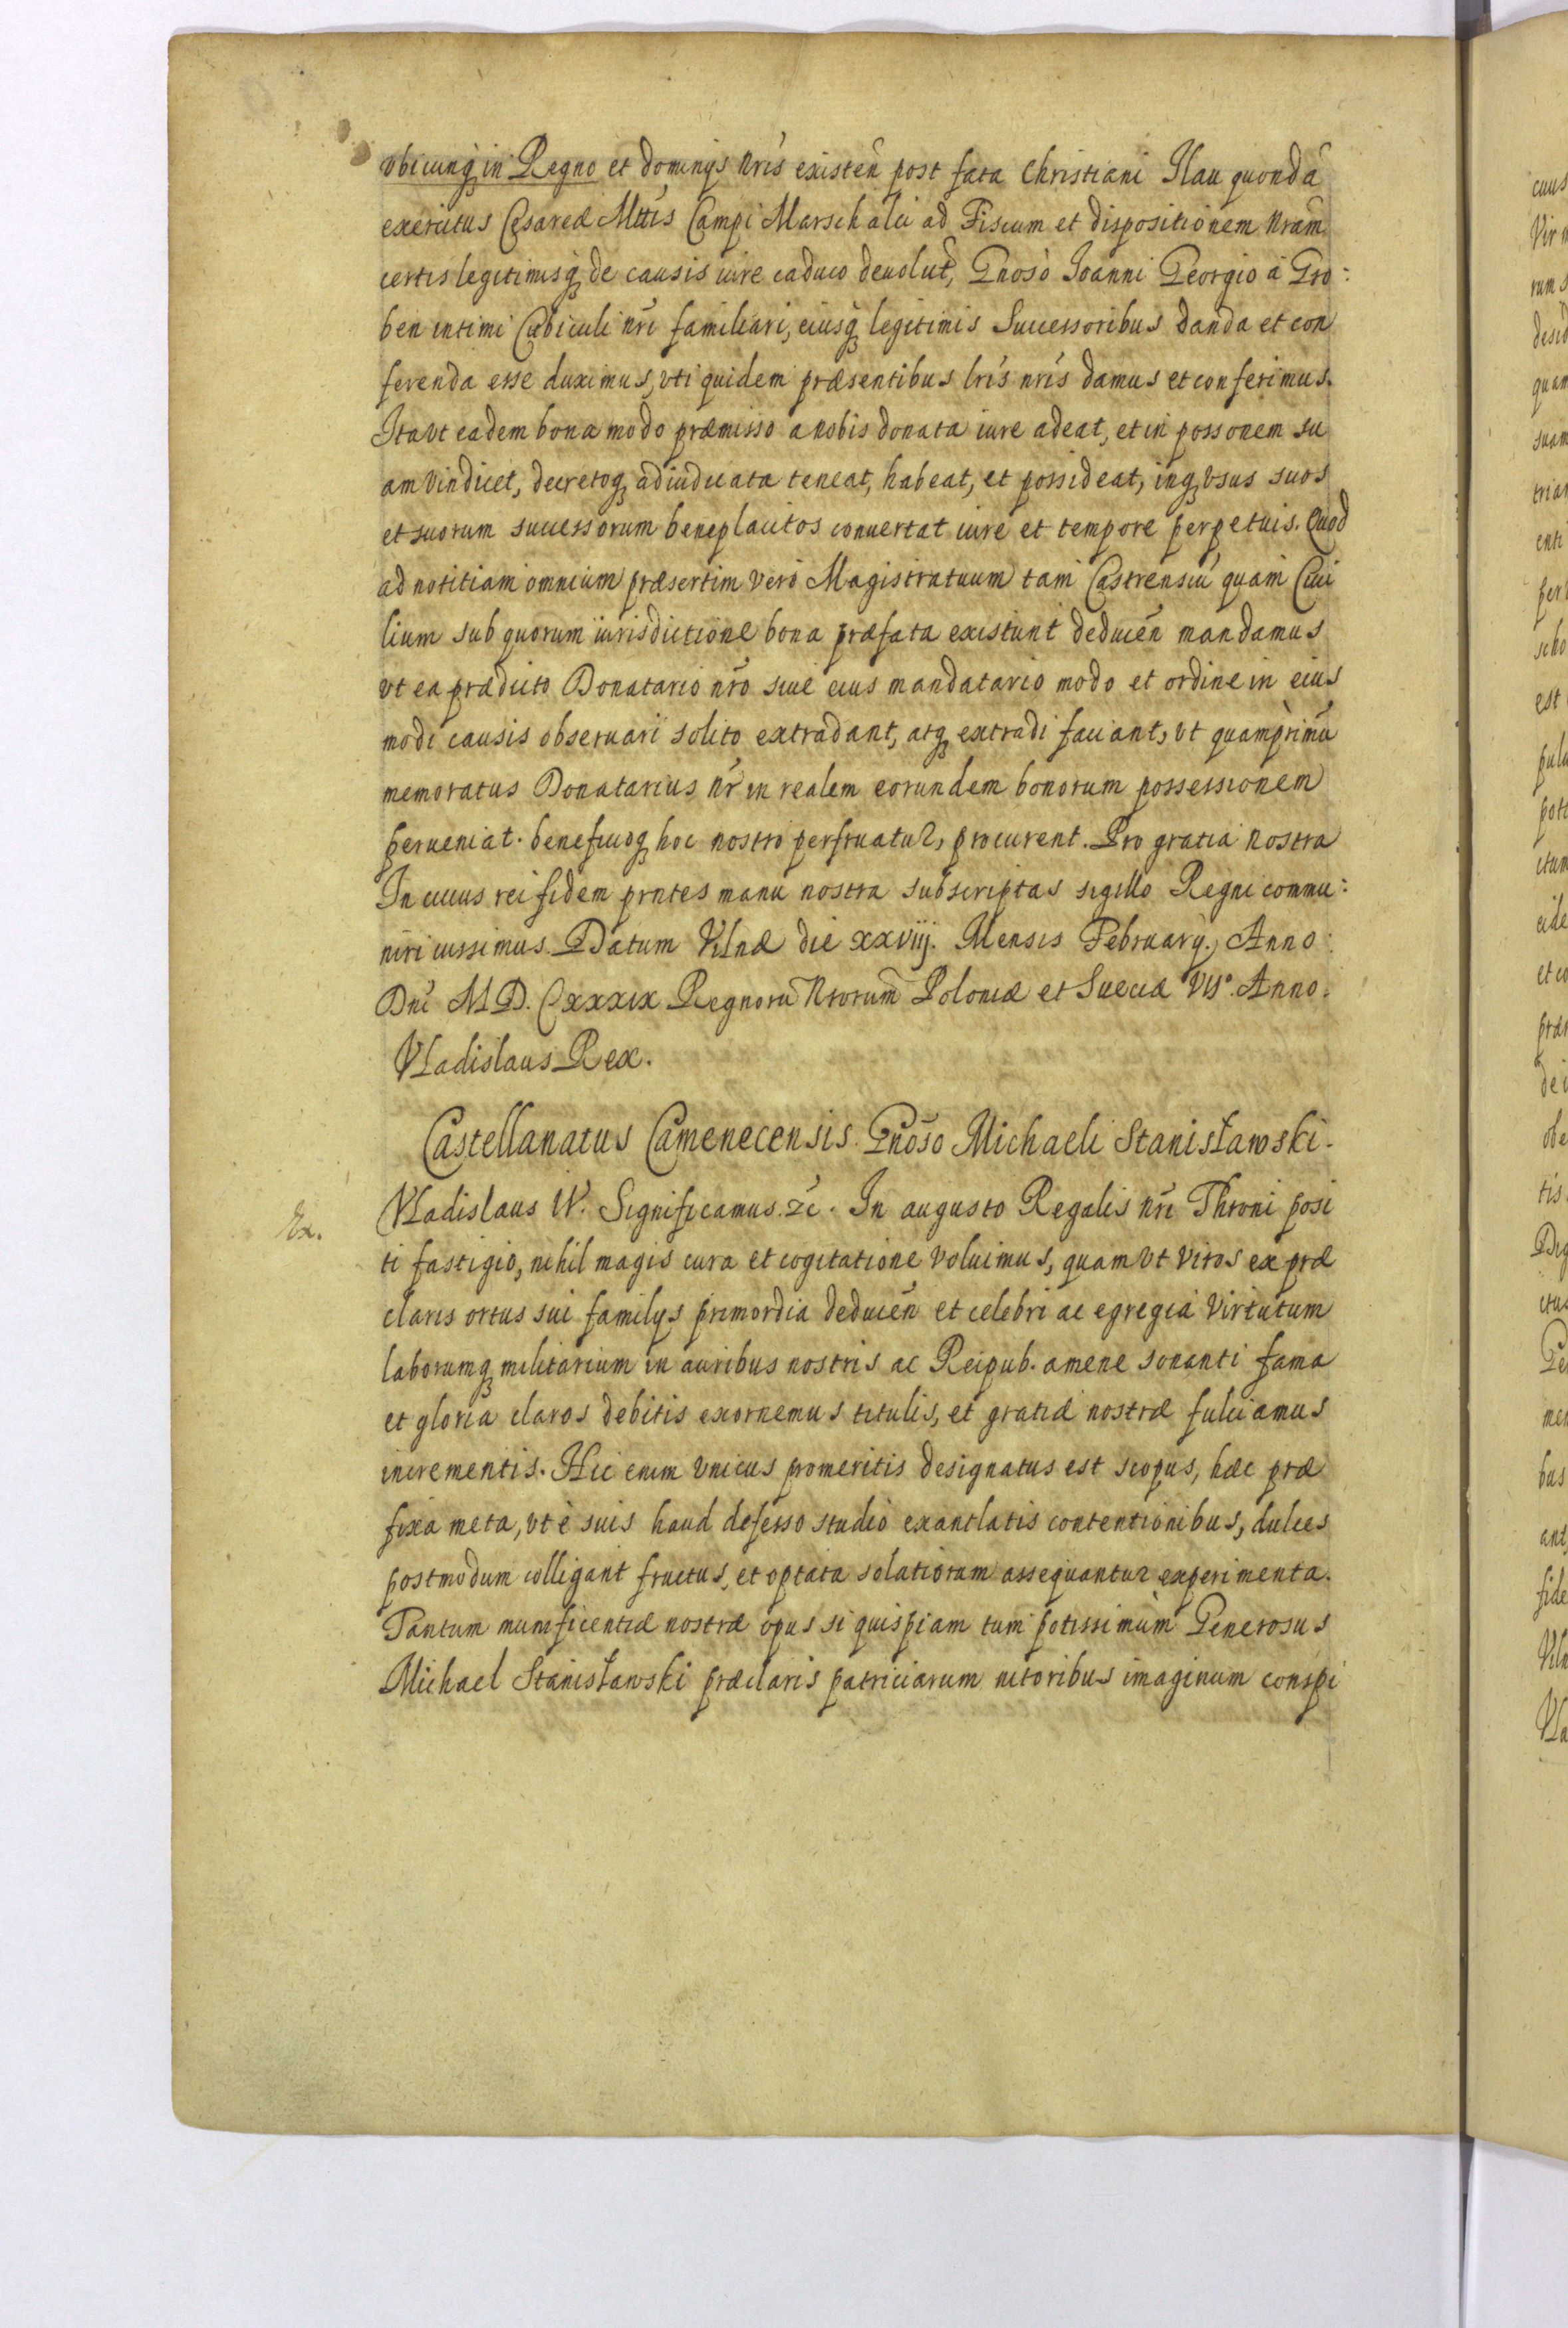 vbicunq̷ in Regno et dominijs nris existeñ post fata Christiani Ilau quondã
exercitus Cesareæ Mttis Campi Marschalci ad Fiscum et dispositionem nram
certis legitimisq̷ de causis iure caduco deuolut, Gnoso Ioanni Georgio à Gro:
ben intimi Cubiculi nri familiari, eiusq̷ legitimis Successoribus danda et con
ferenda esse duximus, vti quidem præsentibus lris nris damus et conferimus.
Ita vt eadem bona modo præmisso a nobis donata iure adeat, et in possonem su
am vindicet, decretoq̷ adiudicata teneat, habeat, et possideat, inq̷ vsus suos
et suorum successorum beneplacitos conuertat iure et tempore perpetuis. Quod
ad notitiam omnium præsertim vero Magistratuum tam Castrensiũ quam Ciui
lium sub quorum iurisdictione bona præfata existunt deduceñ mandamus
vt ea prædicto Donatario nro siue eius mandatario modo et ordine in eius
modi causis obseruari solito extradant, atq̷ extradi faciant, vt quamprimũ
memoratus Donatarius nr in realem eorundem bonorum possessionem
perueniat. beneficioq̷ hoc nostro perfruatur, procurent. Pro gratia nostra
In cuius rei fidem prntes manu nostra subscriptas sigillo Regni commu:
niri iussimus. Datum Vilnæ die xxviij. Mensis February. Anno
Dni M D. Cxxxix Regnorũ Nrorum Poloniæ et Sueciæ VIIº. Anno.
Vladislaus Rex.
Castellanatus Camenecensis. Gnoso Michaeli Stanisławski.
Ex.
Vladislaus IV. Significamus. &c. In augusto Regalis nri Throni posi
ti fastigio, nihil magis cura et cogitatione voluimus, quam vt viros ex præ
claris ortus sui familijs primordia deduceñ et celebri ac egregia virtutum
laborumq̷ militarium in auribus nostris ac Reipub. amene sonanti fama
et gloria claros debitis exornemus titulis, et gratiæ nostræ fulciamus
incrementis. Hic enim vnicus promeritis designatus est scopus, hæc præ
fixa meta, vt è suis haud defesso studio exantlatis contentionibus, dulces
postmodum colligant fructus, et optata solatiorum assequantur experimenta.
Tantum munificentiæ nostræ opus si quispiam tum potissimùm Generosus
Michael Stanisławski præclaris patriciarum nitoribus imaginum conspi